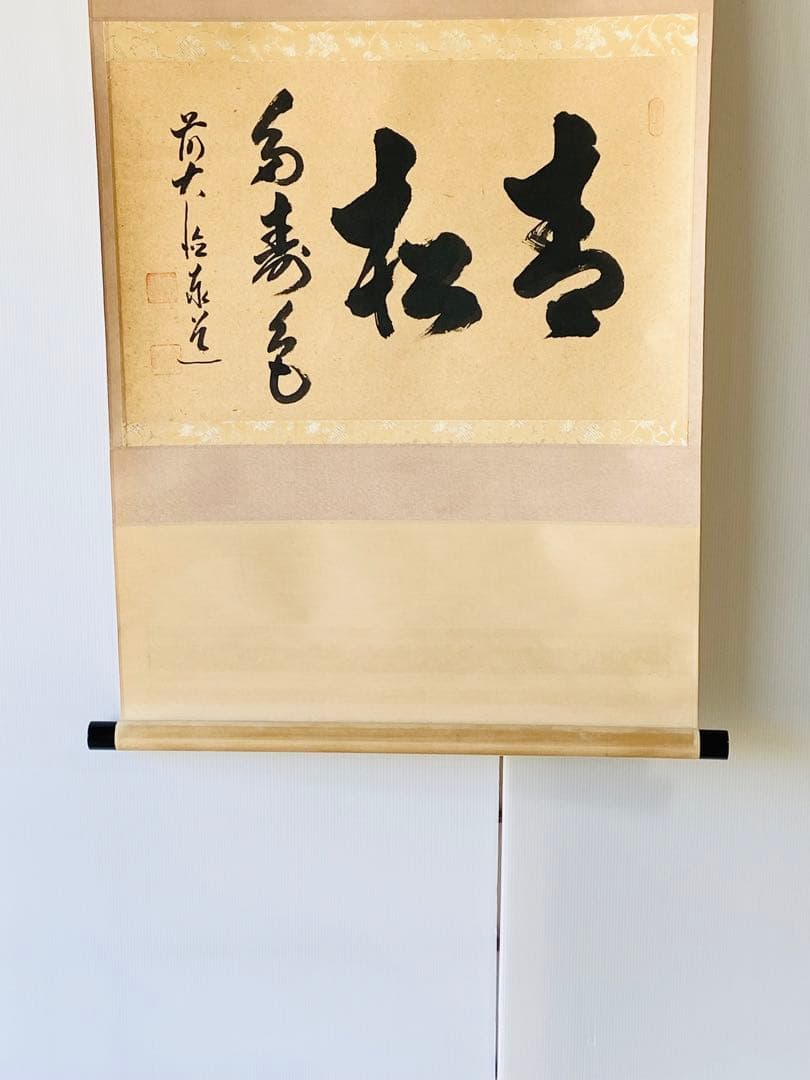 青松
多寿色
前大徳泰道